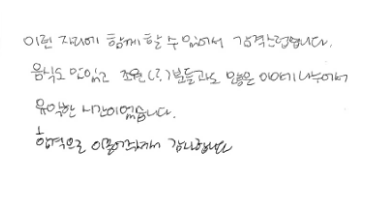 이런 자리에 함께 할 수 있어서 감격스럽습니다.
음식도 맛있고 조원(?)분들과도 많은 이야기 나누어서
유익한 시간이었습니다.
합격으로 이끌어주셔서 감사합니다